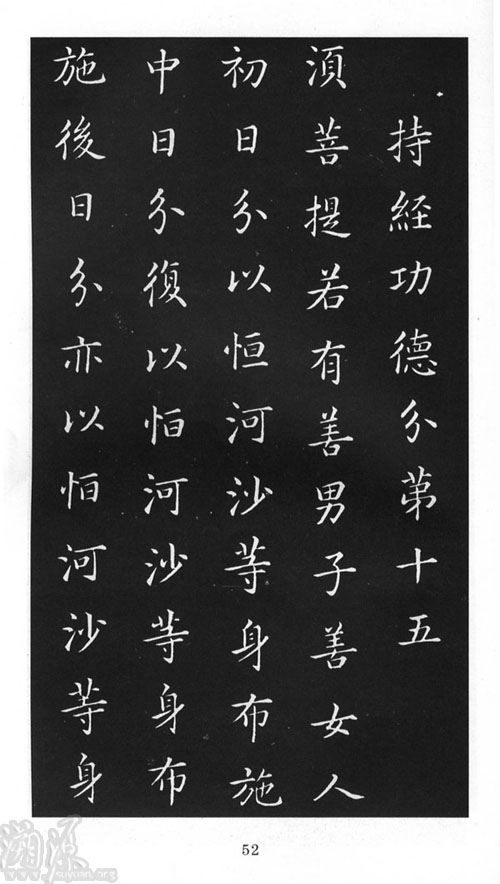 持経功德分苐十五
湏菩提若有善男子善女人
初日分以恒河沙等身布施
中日分復以恒河沙等身布
施後日分亦以恒河沙等身
52
溯源
www.suyuan.org